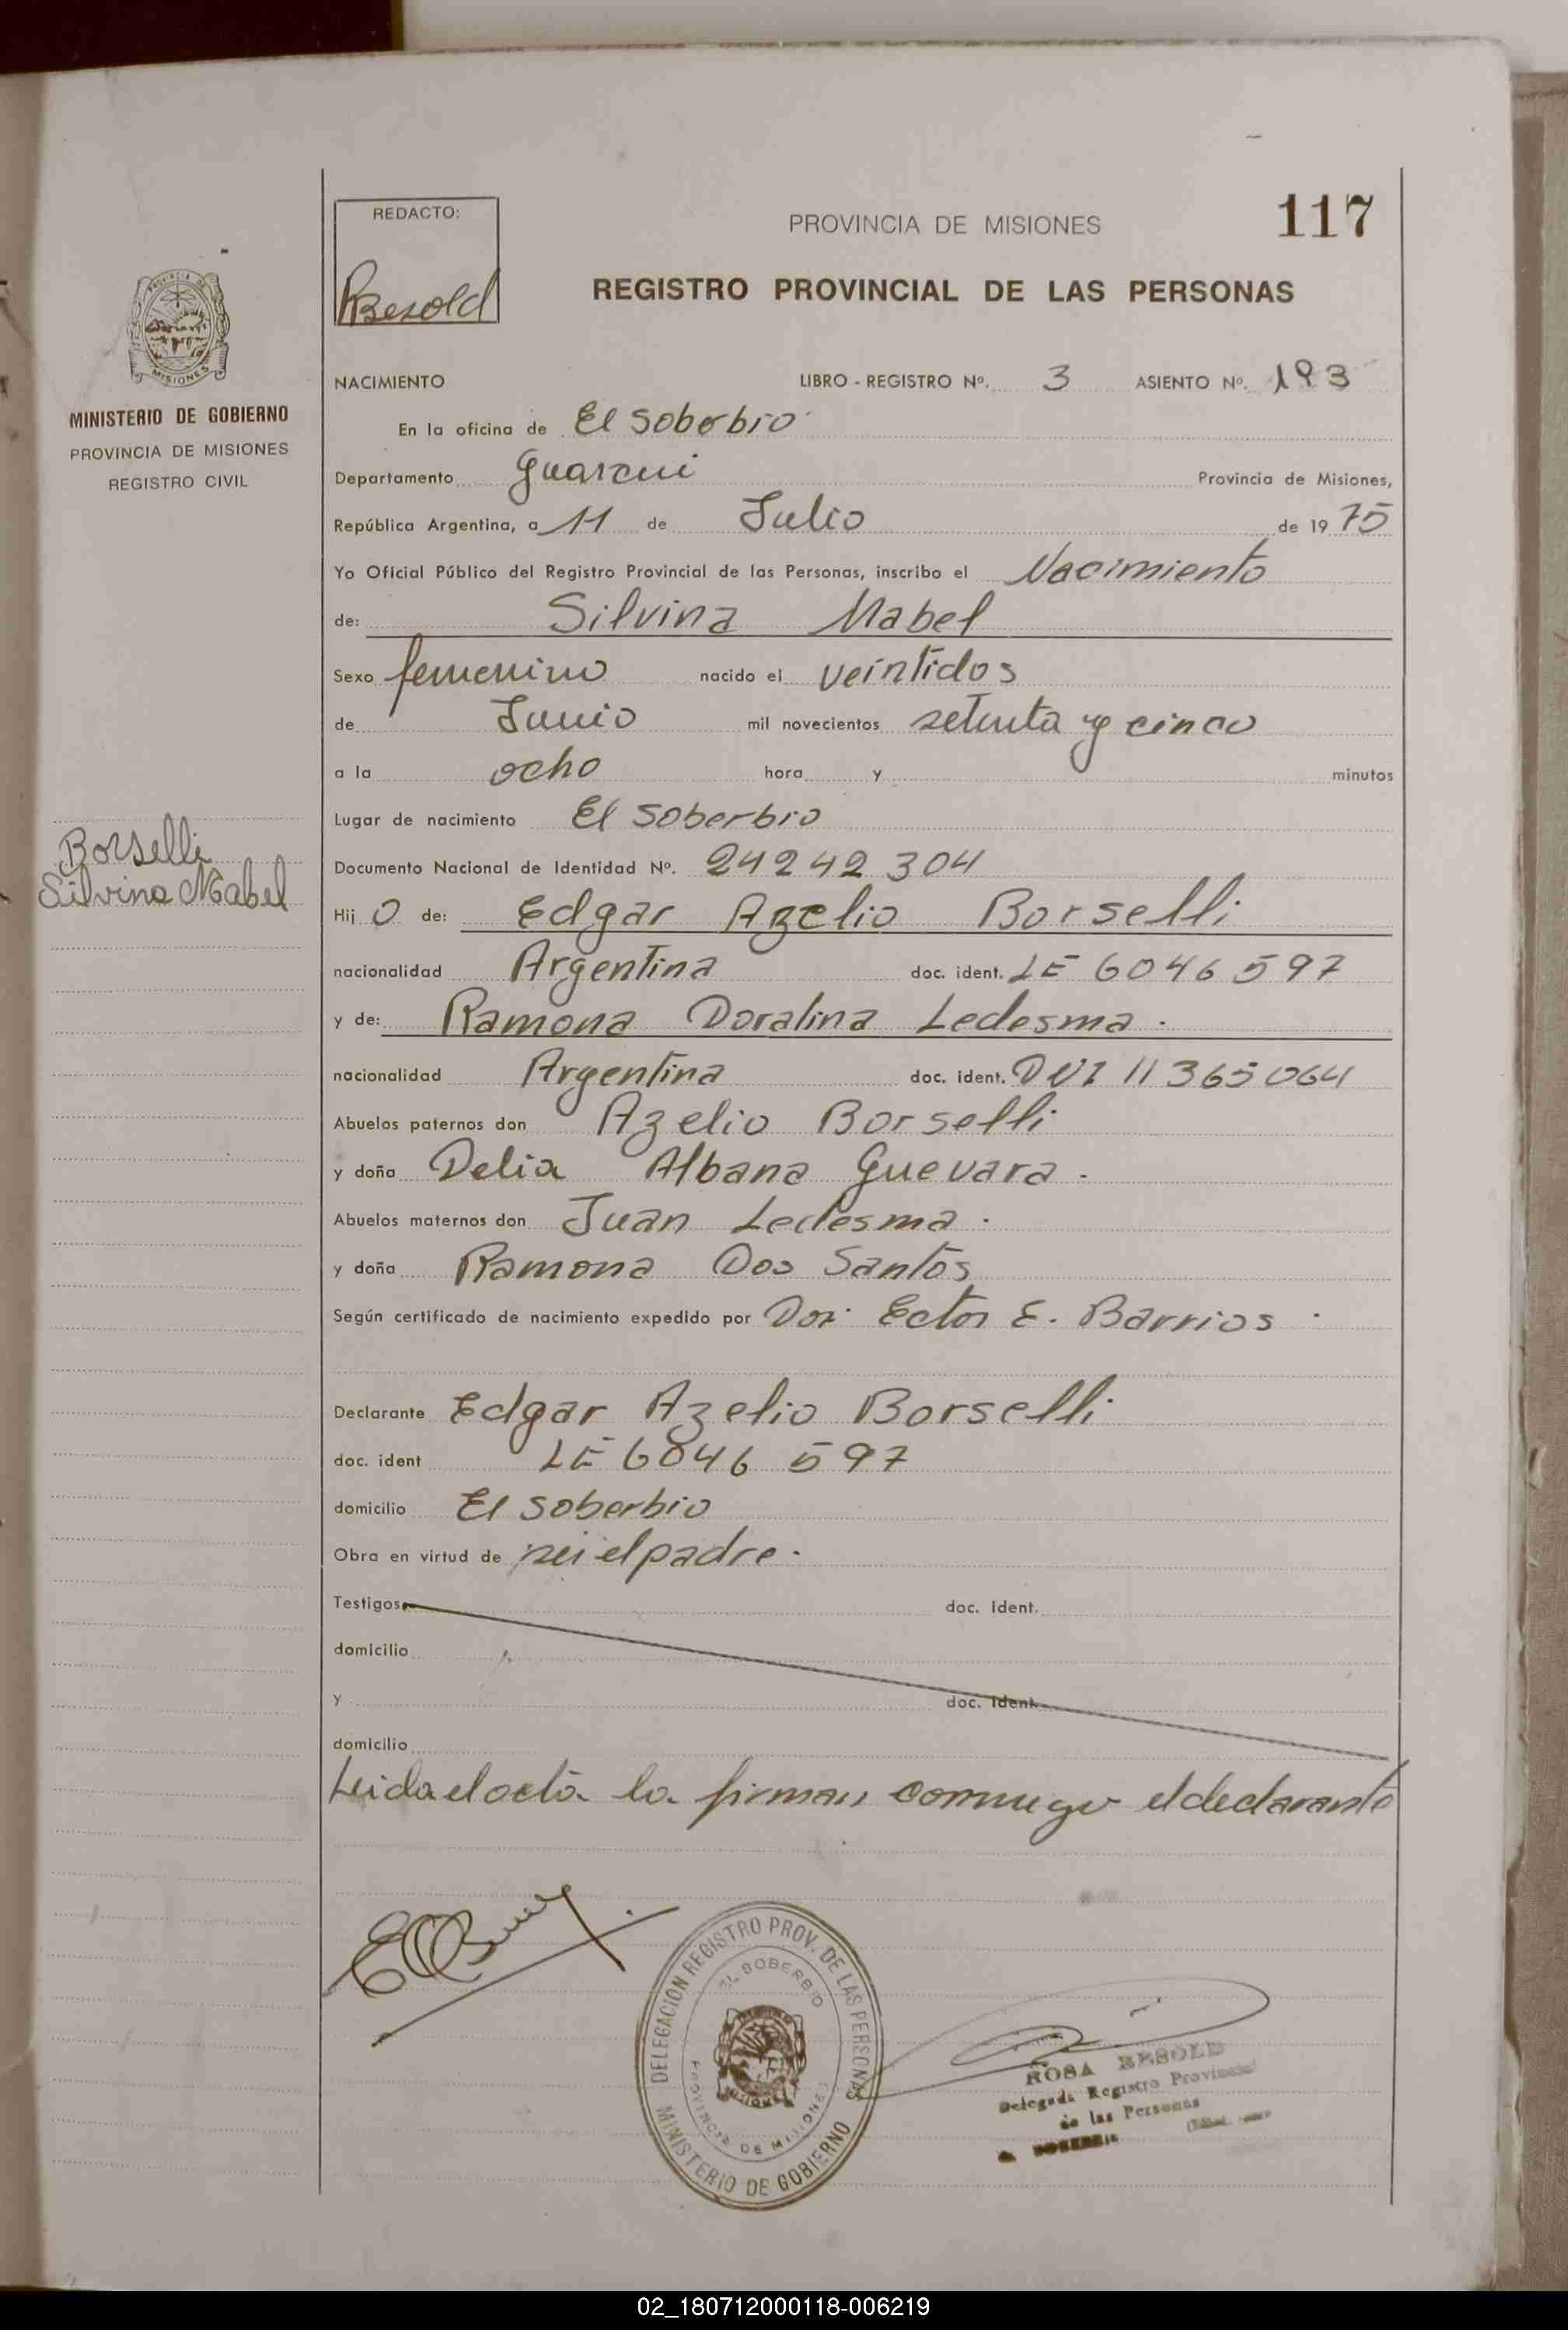 REDACTO:
RBesold
PROVINCIA DE MISIONES
117
REGISTRO PROVINCIAL DE LAS PERSONAS
MISIONES
MINISTERIO DE GOBIERNO
PROVINCIA DE MISIONES
REGISTRO CIVIL
NACIMIENTO LIBRO - REGISTRO Nº. 3 ASIENTO Nº. 193
En la oficina de El Soberbio
Departamento Guarani Provincia de Misiones,
República Argentina, a 11 de Julio de 19 75
Yo Oficial Público del Registro Provincial de las Personas, inscribo el Nacimiento
de: Silvina Mabel
Sexo femenino nacido el veintidos
de Junio mil novecientos setenta y cinco
a la ocho hora y minutos
Lugar de nacimiento El Soberbio
Borselli
Silvina Mabel
Documento Nacional de Identidad Nº. 24242304
Hij o de: Edgar Azelio Borselli
nacionalidad Argentina doc. ident. LE 6046597
y de: Ramona Doralina Ledesma.
nacionalidad Argentina doc. ident. DNI 11365064
Abuelos paternos don Azelio Borselli
y doña Delia Albana Guevara.
Abuelos maternos don Juan Ledesma.
y doña Ramona Dos Santos
Según certificado de nacimiento expedido por Dor. Ector E. Barrios.
Declarante Edgar Azelio Borselli
doc. ident LE 6046597
domicilio El Soberbio
Obra en virtud de ser el padre.
Testigos doc. ident.
domicilio
y doc. ident.
domicilio
Leida el acta la firman conmigo el declarante
DELEGACION REGISTRO PROV. DE LAS PERSONAS
EL SOBERBIO
PROVINCIA DE MISIONES
MINISTERIO DE GOBIERNO
ROSA BESOLD
Delegada Registro Provincial
de las Personas
02_180712000118-006219